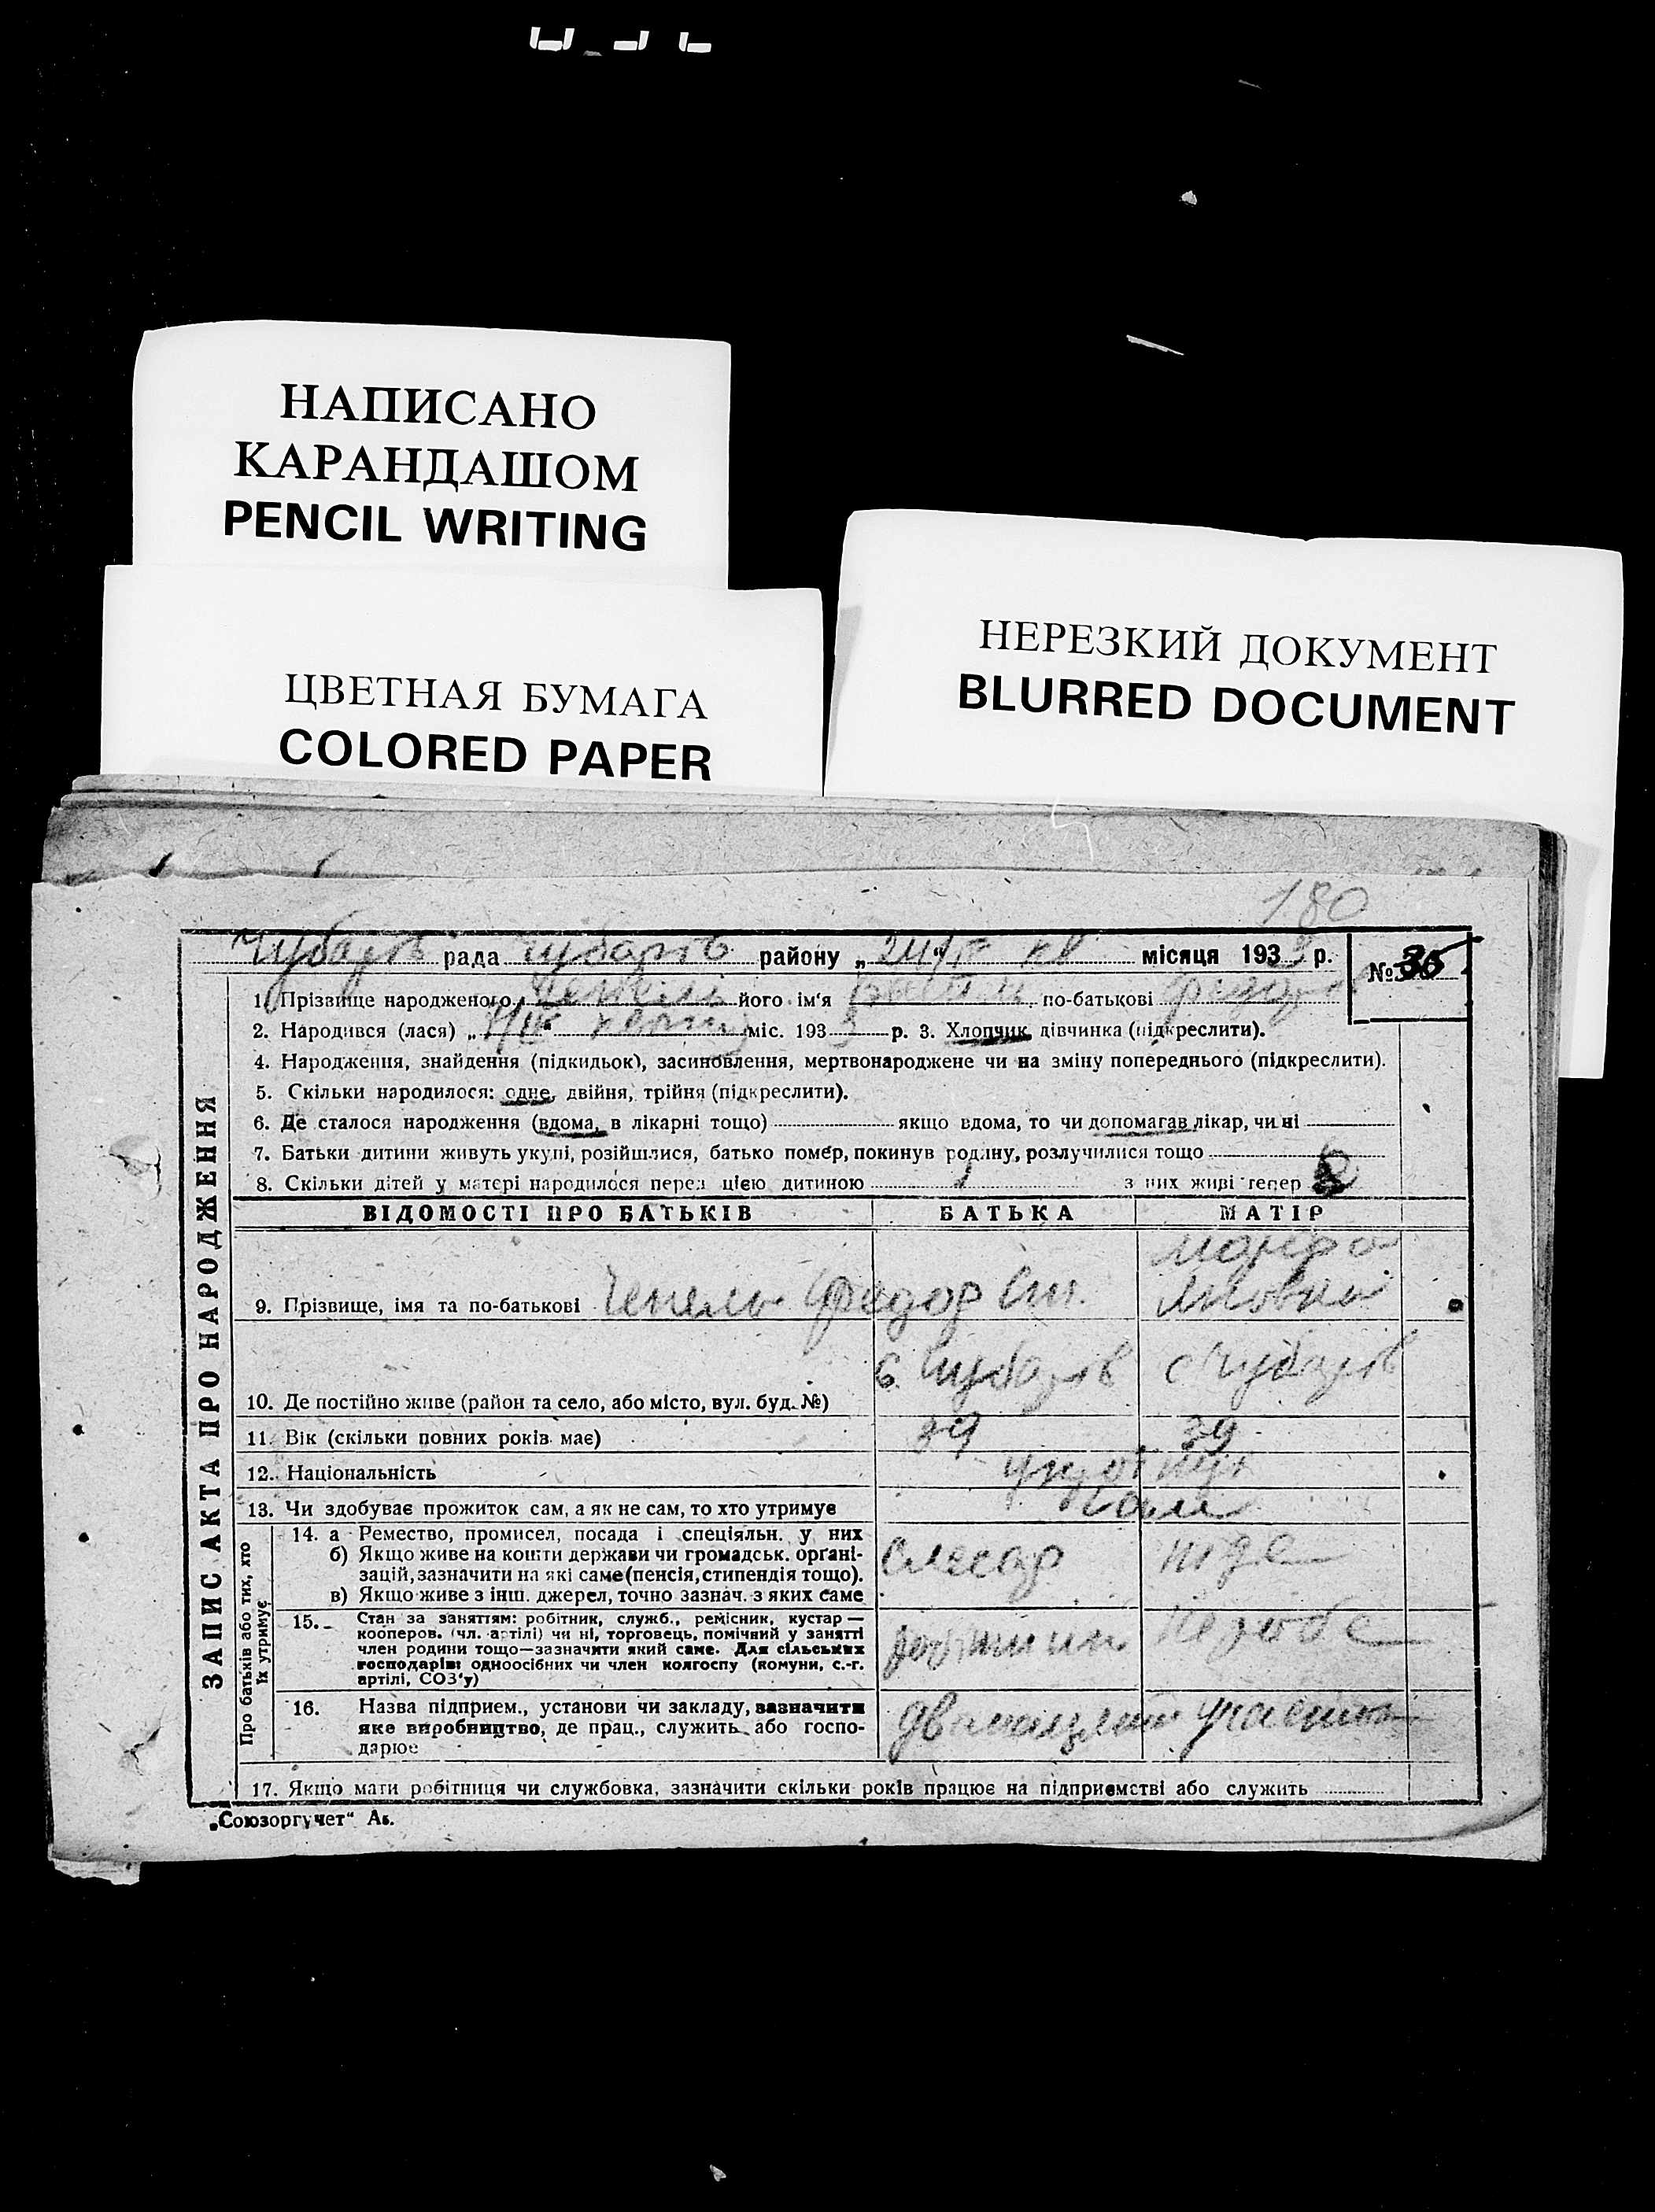 НАПИСАНО
КАРАНДАШОМ
PENCIL WRITING
ЦВЕТНАЯ БУМАГА
COLORED PAPER
НЕРЕЗКИЙ ДОКУМЕНТ
BLURRED DOCUMENT
180
Чубарів рада Чубарів району „24/IV“ кв місяця 1933 р.
№ 35
1. Прізвище народженого його ім'я по-батькові
2. Народився (лася) „ міс. 1933 р. 3. Хлопчик, дівчинка (підкреслити).
4. Народження, знайдення (підкидьок), засиновлення, мертвонароджене чи на зміну попереднього (підкреслити).
5. Скільки народилося: одне, двійня, трійня (підкреслити).
6. Де сталося народження (вдома, в лікарні тощо) якщо вдома, то чи допомагав лікар, чи ні
7. Батьки дитини живуть укупі, розійшлися, батько помер, покинув родину, розлучилися тощо
8. Скільки дітей у матері народилося перед цією дитиною 1 з них живі тепер
ЗАПИС АКТА ПРО НАРОДЖЕННЯ
ВІДОМОСТІ ПРО БАТЬКІВ БАТЬКА МАТІР
9. Прізвище, імя та по-батькові Чепель Федор
10. Де постійно живе (район та село, або місто, вул. буд. №) с. Чубарів с Чубарів
11. Вік (скільки повних років має) 39 39
12. Національність
13. Чи здобуває прожиток сам, а як не сам, то хто утримує сам
Про батьків або тих, хто їх утримує
14. а Ремество, промисел, посада і спеціяльн. у них
б) Якщо живе на кошти держави чи громадськ. органі-
зацій, зазначити на які саме (пенсія, стипендія тощо).
в) Якщо живе з інш. джерел, точно зазнач. з яких саме
слесар
15. Стан за заняттям: робітник, служб., ремісник, кустар —
кооперов. (чл. артілі) чи ні, торговець, помічний у занятті
член родини тощо—зазначити який саме. Для сільських
господарів: одноосібних чи член колгоспу (комуни, с.-г.
артілі, СОЗ'у)
робітник
16. Назва підприєм., установи чи закладу, вазначити
яке виробництво, де прац., служить або госпо-
дарює
17. Якщо мати робітниця чи службовка, зазначити скільки років працює на підприємстві або служить
„Союзоргучет“ Ав.